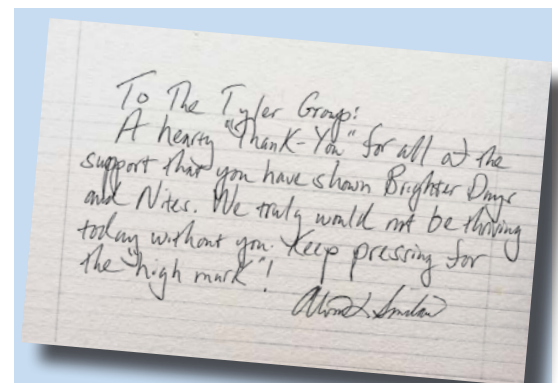 To The Tyler Group:
A hearty "Thank-You" for all of the
support that you have shown Brighter Days
and Nites. We truly would not be thriving
today without you. Keep pressing for
the "high mark"!